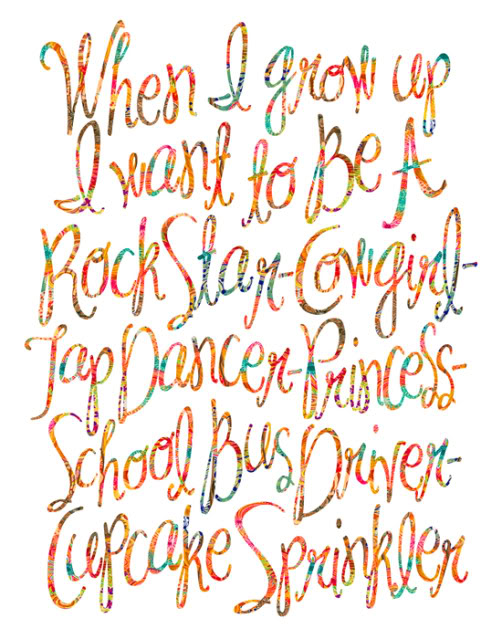 When I grow up
I want to Be A
Rock Star-Cowgirl-
Tap Dancer-Princess-
School Bus Driver-
Cupcake Sprinkler